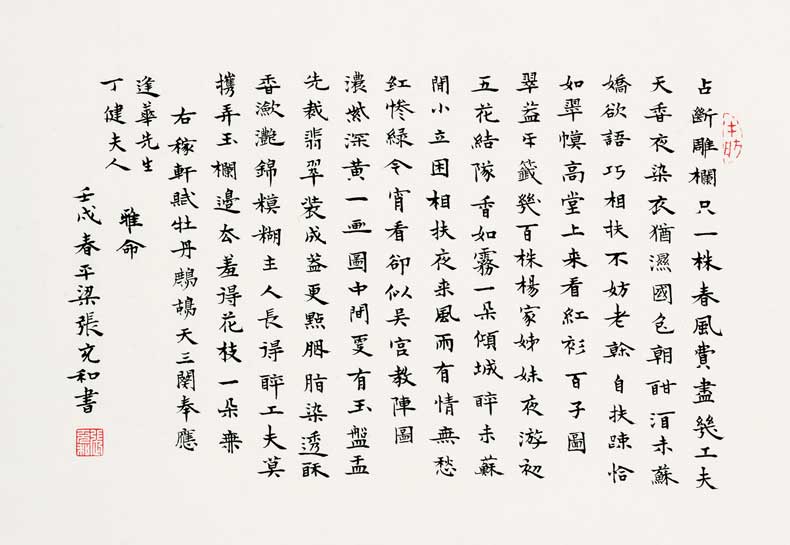 占斷雕欄只一株春風費盡幾工夫
天香夜染衣猶濕國色朝酣酒未蘇
嬌欲語巧相扶不妨老榦自扶踈恰
如翠幙高堂上來看紅衫百子圖
翠蓋牙籤幾百株楊家姊妹夜游初
五花結隊香如霧一朵傾城醉未蘇
閒小立困相扶夜來風雨有情無愁
紅慘綠今宵看卻似吴宫教陣圖
濃紫深黃一畫圖中間更有玉盤盂
先裁翡翠裝成蓋更點胭脂染透酥
香瀲灧錦糢糊主人長得醉工夫莫
攜弄玉欄邊去羞得花枝一朵無
右稼軒賦牡丹鷓鴣天三闋奉應
逢華先生
丁健夫人
雅命
壬戌春平梁張充和書